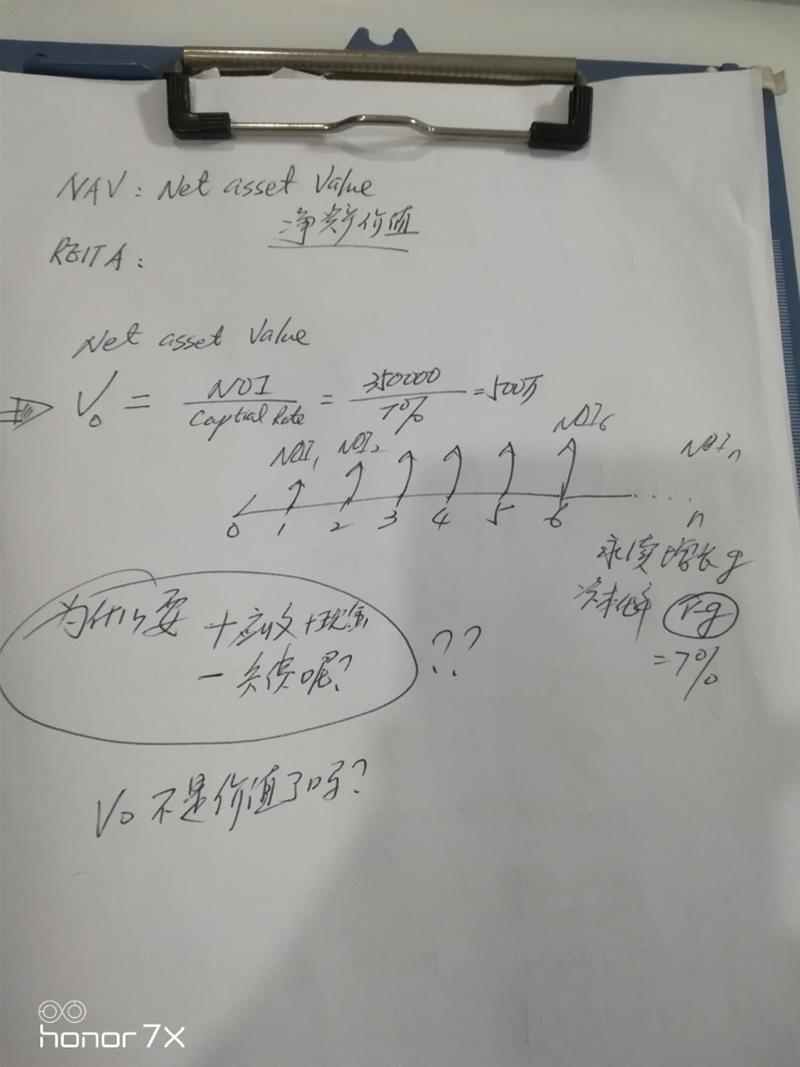 NAV: Net asset Value
净资产价值
REITA:
Net asset Value
⇒ V₀ = NOI / Captial Rate = 350000 / 7% = 500万
NOI₁ NOI₂ NOI₆ NOIₙ
0 1 2 3 4 5 6 .... n
永续增长g
资本化率 r-g
=7%
为什么要 +应收+现金
-负债呢? ??
V₀ 不是价值了吗?
honor 7X